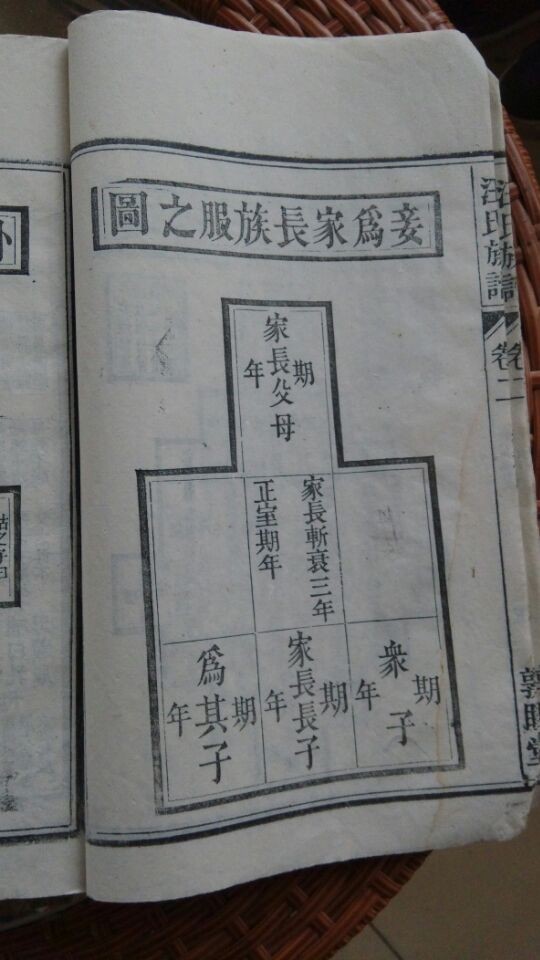 妾為家長族服之圖
家長父母
期年
家長斬衰三年
正室期年
衆子
期年
家長長子
期年
為其子
期年
汪氏族譜
卷二
敦睦堂